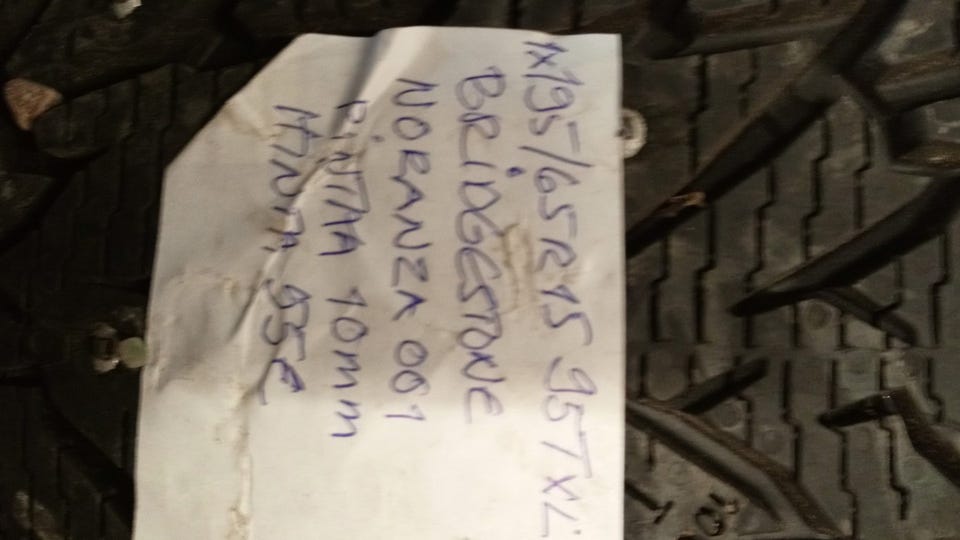 1x195/65R15 95T XL
BRiDGESTONE
NORANZA 001
PiNTAA 10mm
HINTA 55€